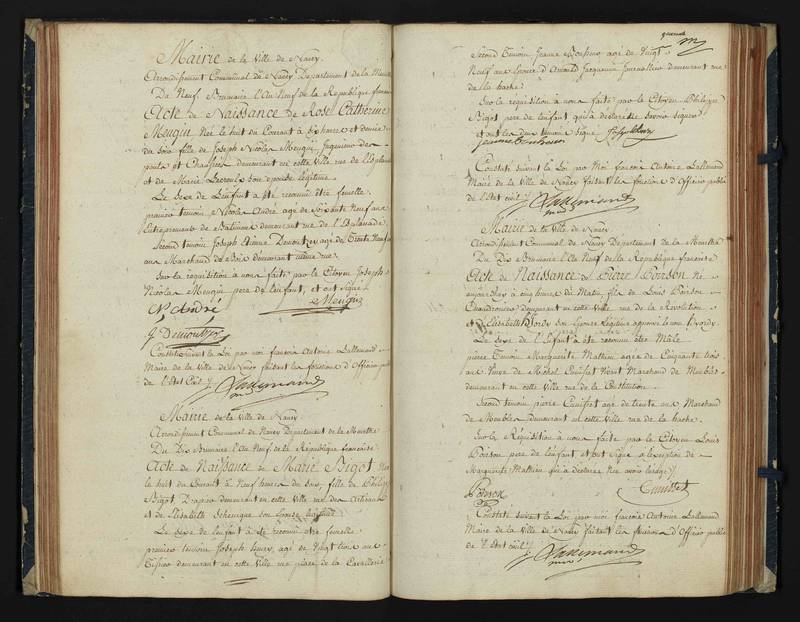 Mairie de la Ville de Nancy.
Arrondissement Communal de Nancy Departement de la Meurthe
Du Neuf Brumaire l'An Neuf de la Republique francaise
Acte de Naissance de Rose Catherine
Mengin Née le huit du Courant à six heures et demie
du soir fille de Joseph Nicolas Mengin, Ingenieur des
ponts et Chaussées demeurant en cette Ville rue de l'Esplanade
et de Marie Lacroix son epouse legitime.
Le Sexe de l'enfant a été reconnu être femelle.
premier temoin Nicolas André agé de Soixante Neuf ans
Entrepreneur de Batiment demeurant rue de l'Esplanade.
Second temoin Joseph Etienne agé de Trente Neuf
ans Marchand de Bois demeurant même rue.
Sur la requisition à nous faite par le Citoyen Joseph
Nicolas Mengin pere de l'enfant, et ont signé
N André Mengin
J
Constitionnent la Loi par moi francois Antoine Lallemand
Maire de la Ville de Nancy faisant les fonctions d'Officier public
de l'Etat Civil
Lallemand
Mairie de la Ville de Nancy
Arrondissement Communal de Nancy Departement de la Meurthe
Du Dix Brumaire l'An Neuf de la Republique francaise
Acte de Naissance de Marie Bigot Née
le huit du Courant à Neuf heures du soir, fille de Philippe
Bigot Drapier demeurant en cette Ville rue des Artisans
et de Elisabeth son Epouse legitime
Le Sexe de l'enfant a été reconnu être femelle
premier temoin Joseph henry, agé de Vingt trois ans
Tissier demeurant en cette Ville rue place de la Cavallerie
Second Temoin Jeanne agé de Vingt
Neuf ans Epouse d'Arnould Jacquemin Journallier demeurant rue
de la hache
Sur la requisition à nous faite par le Citoyen Philippe
Bigot pere de l'enfant, qui a declaré ne savoir signer
et ont les deux temoin signé Joseph henry
jeanne
Constaté suivant la Loi par Moi francois Antoine Lallemand
Maire de la Ville de Nancy faisant les fonctions d'Officier public
de l'Etat civil
Lallemand
Mairie de la Ville de Nancy
Arrondissement Communal de Nancy Departement de la Meurthe
Du Dix Brumaire l'An Neuf de la Republique francaise
Acte de Naissance de Pierre Poirson Né
aujourdhuy à cinq heures du Matin, fils de Louis Poirson
Chaudronnier demeurant en cette Ville rue de la Révolution
et d'Elisabeth son Epouse legitime
Le Sexe de l'Enfant a été reconnu être Mâle
pierre Temoin Marguerite Mathieu agée de Cinquante trois
ans Veuve de Michel Marchand de Meubles
demeurant en cette Ville rue de la Constitution
Second temoin pierre agé de trente ans Marchand
de Meubles Demeurant en cette Ville rue de la hache.
Sur la Réquisition à nous faite par le Citoyen Louis
Poirson pere de l'enfant et ont signé à l'exception de
Marguerite Mathieu qui a declaré ne
Poirson
Constaté suivant la Loi par moi francois Antoine Lallemand
Maire de la Ville de Nancy faisant les fonctions d'Officier public
de l'Etat civil
Lallemand